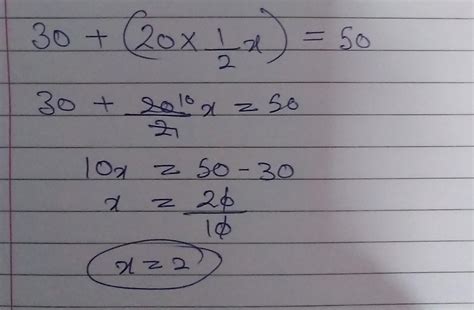 30 + (20 × 1/2 x) = 50
30 + 20 10/2 1 x = 50
10x = 50 - 30
x = 20/10
x = 2